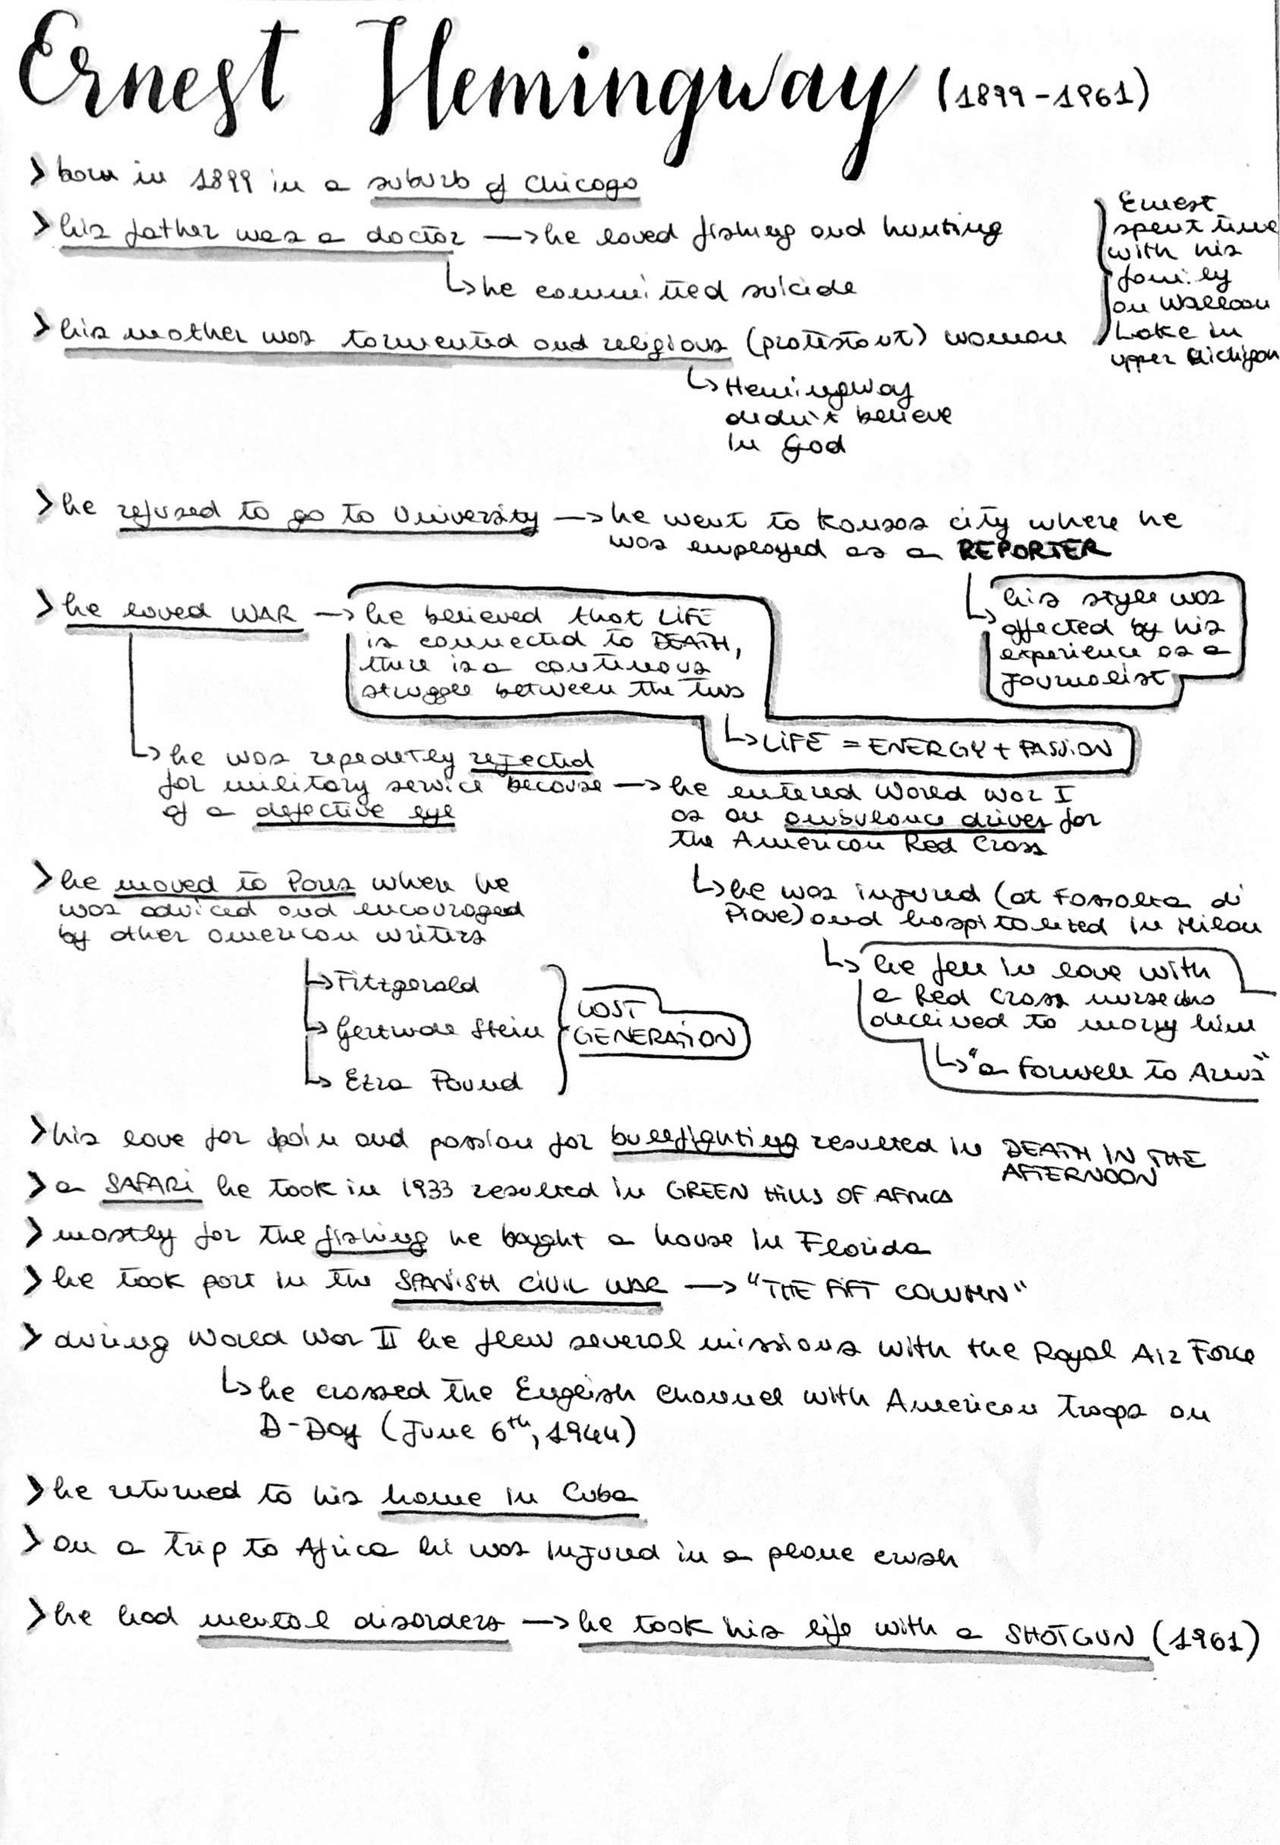 Ernest Hemingway (1899-1961)
> born in 1899 in a suburb of Chicago
> his father was a doctor → he loved fishing and hunting
↳ he committed suicide
> his mother was tormented and religious (protestant) woman
↳ Hemingway
didn't believe
in God
Ernest
spent time
with his
family
on Walloon
Lake in
upper Michigan
> he refused to go to University → he went to Kansas city where he
was employed as a REPORTER
↳ his style was
affected by his
experience as a
journalist
> he loved WAR → he believed that LIFE
is connected to DEATH,
there is a continuous
struggle between the two
↳ LIFE = ENERGY + PASSION
↳ he was repeatedly rejected
for military service because
of a defective eye
→ he entered World War I
as an ambulance driver for
the American Red Cross
↳ he was injured (at Fossalta di
Piave) and hospitalized in Milan
↳ he fell in love with
a Red Cross nurse who
deceived to marry him
↳ "a Farwell to Arms"
> he moved to Paris where he
was adviced and encouraged
by other american writers
↳ Fitzgerald
↳ Gertrude Stein
↳ Ezra Pound
LOST
GENERATION
> his love for spain and passion for bullfighting resulted in DEATH IN THE
AFTERNOON
> a SAFARI he took in 1933 resulted in GREEN HILLS OF AFRICA
> mostly for the fishing he bought a house in Florida
> he took part in the SPANISH CIVIL WAR → "THE FIFT COLUMN"
> during World War II he flew several missions with the Royal Air Force
↳ he crossed the English channel with American troops on
D-Day (June 6th, 1944)
> he returned to his home in Cuba
> on a trip to Africa he was injured in a plane crash
> he had mental disorders → he took his life with a SHOTGUN (1961)